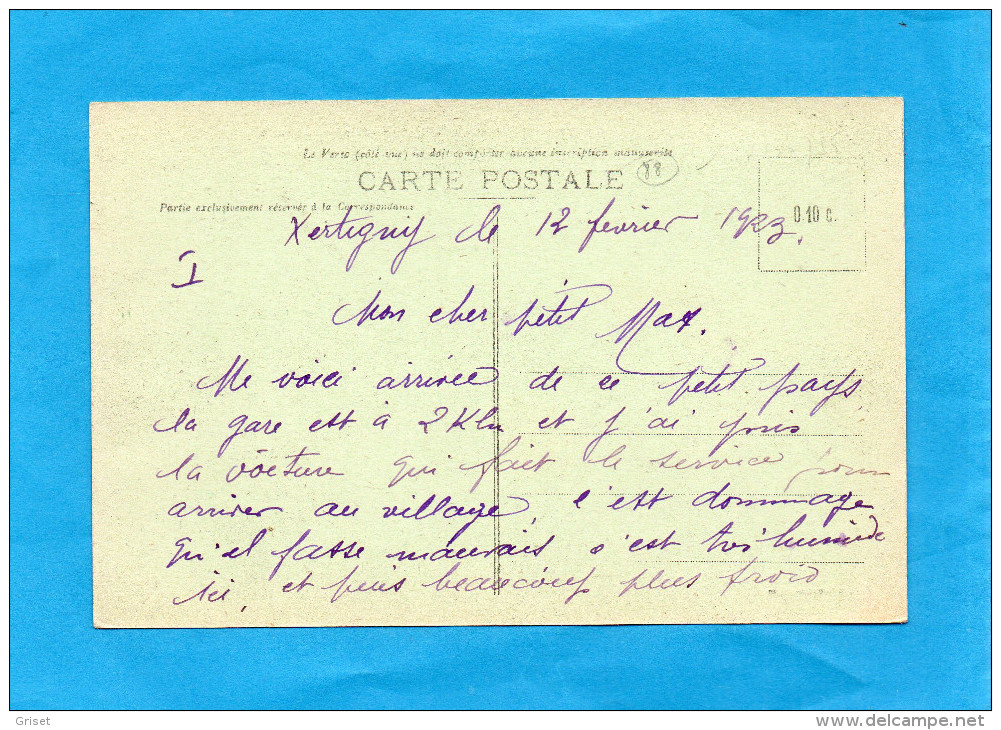 Le Verso (côté vue) ne doit comporter aucune inscription manuscrite
CARTE POSTALE
88
Partie exclusivement réservée à la Correspondance
0.10 c.
Xertigny le 12 février 1923.
I
Mon cher petit Max.
Me voici arrivée de ce petit pays
la gare est à 2 Klm et j'ai pris
la voiture qui fait le service pour
arriver au village, c'est dommage
qu'il fasse mauvais c'est très humide
ici, et puis beaucoup plus froid
Griset
http://www.delcampe.net